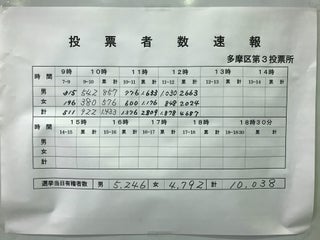 投票者数速報
多摩区第3投票所
時間 9時 10時 11時 12時 13時 14時
7-9 9-10 累計 10-11 累計 11-12 累計 12-13 累計 13-14 累計
男 315 542 857 776 1633 1030 2663
女 196 380 576 600 1176 848 2024
計 511 922 1433 1376 2809 1878 4687
時間 15時 16時 17時 18時 18時30分
14-15 累計 15-16 累計 16-17 累計 17-18 累計 18-18:30 累計
男
女
計
選挙当日有権者数 男 5,246 女 4,792 計 10,038